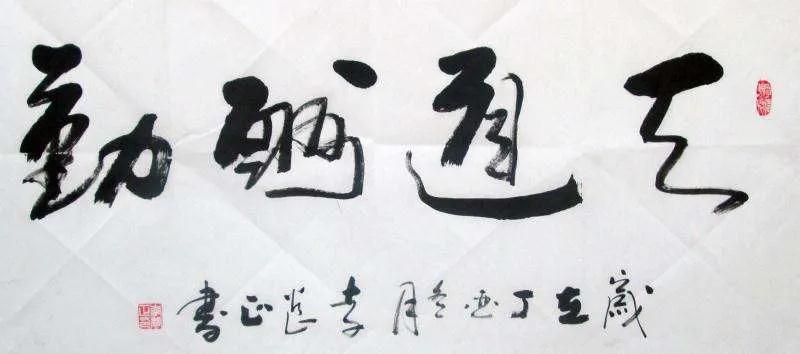 天道酬勤
歲在丁酉冬月李進正書